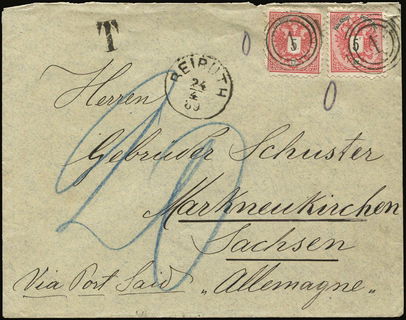 T
BEIRUTH
24
4
5
5
0
0
20
Herren
Gebrüder Schuster
Markneukirchen
Sachsen
Via Port Said „Allemagne"